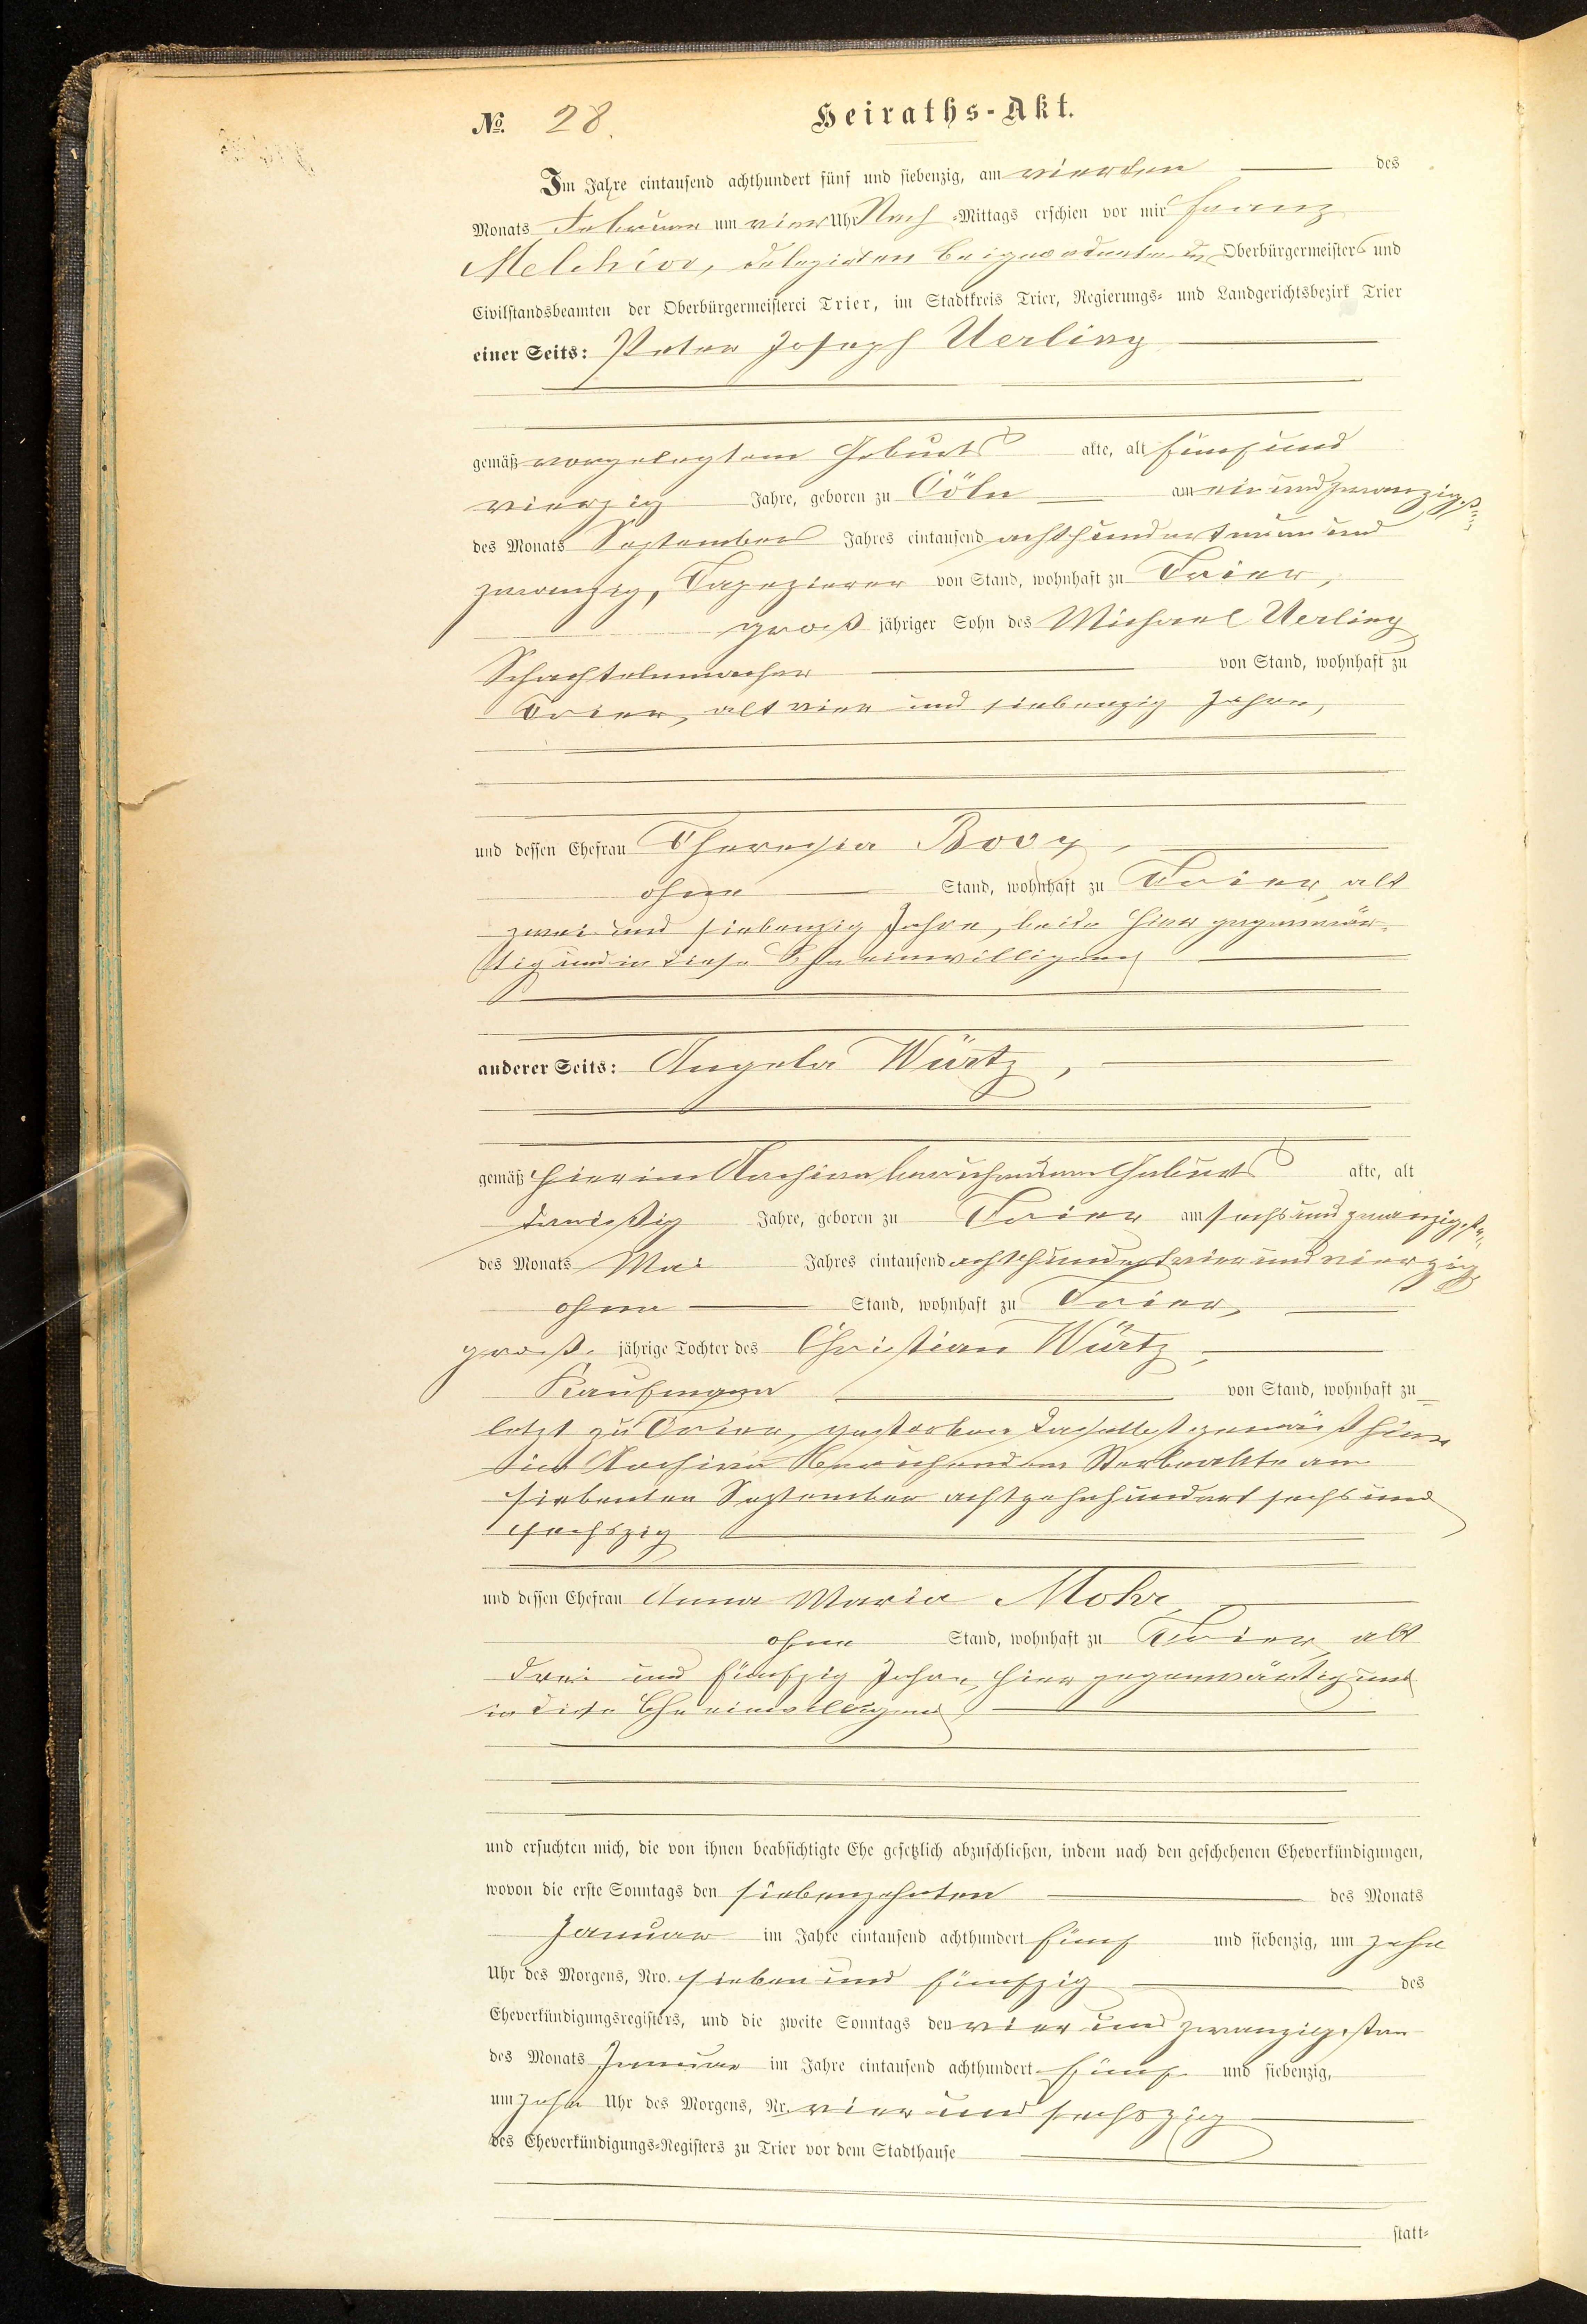 № 28. Heiraths-Akt.
Im Jahre eintausend achthundert fünf und siebenzig, am vierten des
Monats Februar um vier Uhr Nach-Mittags erschien vor mir Franz
Melchior, delegirten Beigeordneten des Oberbürgermeisters und
Civilstandsbeamten der Oberbürgermeisterei Trier, im Stadtkreis Trier, Regierungs- und Landgerichtsbezirk Trier
einer Seits: Peter Joseph Uerling
gemäß vorgelegtem Geburts akte, alt fünf und
vierzig Jahre, geboren zu Cöln am ein und zwanzigst
des Monats September Jahres eintausend achthundert neun und
zwanzig, Tapezierer von Stand, wohnhaft zu Trier,
groß jähriger Sohn des Michael Uerling
Schachtelmacher von Stand, wohnhaft zu
Trier, alt vier und siebenzig Jahre,
und dessen Ehefrau Theresia Bovy,
ohne Stand, wohnhaft zu Trier, alt
zwei und siebenzig Jahre, beide hier gegenwär-
tig und in diese Ehe einwilligend
anderer Seits: Angela Würtz,
gemäß hier im Archive beruhendem Geburts akte, alt
dreißig Jahre, geboren zu Trier am sechs und zwanzigsten
des Monats Mai Jahres eintausend achthundert vier und vierzig
ohne Stand, wohnhaft zu Trier,
groß jährige Tochter des Christian Würtz,
Kaufmann von Stand, wohnhaft zu
letzt zu Trier, gestorben daselbst gemäß hier
im Archive beruhendem Sterbeakte am
siebenten September achtzehnhundert sechs und
sechszig
und dessen Ehefrau Anna Maria Mohr,
ohne Stand, wohnhaft zu Trier, alt
drei und fünfzig Jahre, hier gegenwärtig und
in diese Ehe einwilligend
und ersuchten mich, die von ihnen beabsichtigte Ehe gesetzlich abzuschließen, indem nach den geschehenen Eheverkündigungen,
wovon die erste Sonntags den siebenzehnten des Monats
Januar im Jahre eintausend achthundert fünf und siebenzig, um zehn
Uhr des Morgens, Nro. sieben und fünfzig des
Eheverkündigungsregisters, und die zweite Sonntags den vier und zwanzigsten
des Monats Januar im Jahre eintausend achthundert fünf und siebenzig,
um zehn Uhr des Morgens, Nr. vier und sechszig
des Eheverkündigungs-Registers zu Trier vor dem Stadthause
statt-